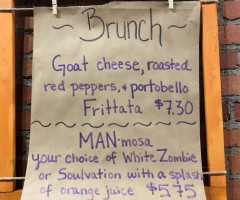 ~ Brunch ~
Goat cheese, roasted
red peppers, + portobello
Frittata $7.30
MAN-mosa
your choice of White Zombie
or Soulvation with a splash
of orange juice $5.75